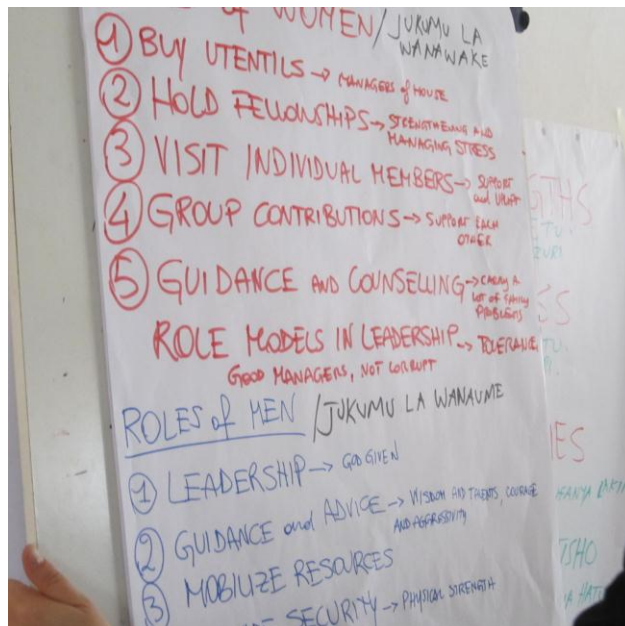 OF WOMEN / JUKUMU LA
WANAWAKE
① BUY UTENTILS → MANAGERS of HOUSE
② HOLD FELLOWSHIPS → STRENGTHENING AND
MANAGING STRESS
③ VISIT INDIVIDUAL MEMBERS → SUPPORT
and UPLIFT
④ GROUP CONTRIBUTIONS → SUPPORT EACH
OTHER
⑤ GUIDANCE AND COUNSELLING → CARRY A
LOT of FAMILY
PROBLEMS
ROLE MODELS IN LEADERSHIP → TOLERANCE
GOOD MANAGERS, NOT CORRUPT
ROLES of MEN / JUKUMU LA WANAUME
① LEADERSHIP → GOD GIVEN
② GUIDANCE and ADVICE → WISDOM AND TALENTS, COURAGE
AND AGGRESSIVITY
③ MOBILIZE RESOURCES
SECURITY → PHYSICAL STRENGTH
GTHS
ETU.
ZURI
ES
TU.
IES
TSHO